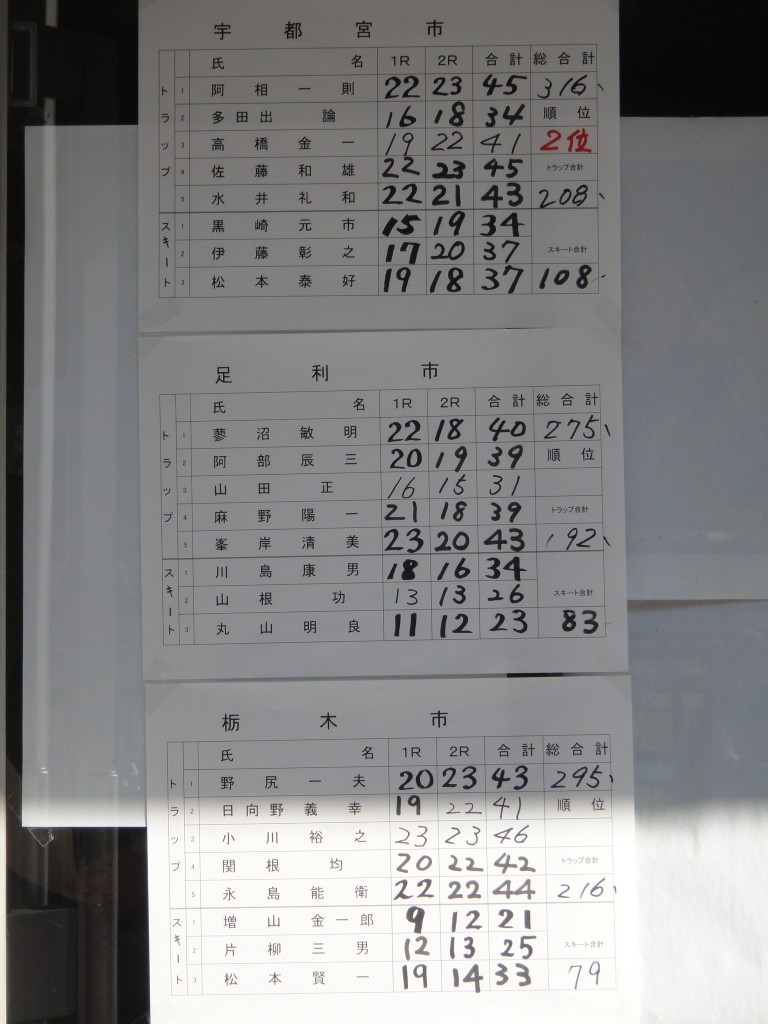 宇都宮市
氏名 1R 2R 合計 総合計
トラップ
1 阿相一則 22 23 45 316
2 多田出論 16 18 34 順位
3 高橋金一 19 22 41 2位
4 佐藤和雄 22 23 45 トラップ合計
5 水井礼和 22 21 43 208
スキート
1 黒崎元市 15 19 34
2 伊藤彰之 17 20 37 スキート合計
3 松本泰好 19 18 37 108
足利市
氏名 1R 2R 合計 総合計
トラップ
1 蓼沼敏明 22 18 40 275
2 阿部辰三 20 19 39 順位
3 山田正 16 15 31
4 麻野陽一 21 18 39 トラップ合計
5 峯岸清美 23 20 43 192
スキート
1 川島康男 18 16 34
2 山根功 13 13 26 スキート合計
3 丸山明良 11 12 23 83
栃木市
氏名 1R 2R 合計 総合計
トラップ
1 野尻一夫 20 23 43 295
2 日向野義幸 19 22 41 順位
3 小川裕之 23 23 46
4 関根均 20 22 42 トラップ合計
5 永島能衛 22 22 44 216
スキート
1 増山金一郎 9 12 21
2 片柳三男 12 13 25 スキート合計
3 松本賢一 19 14 33 79